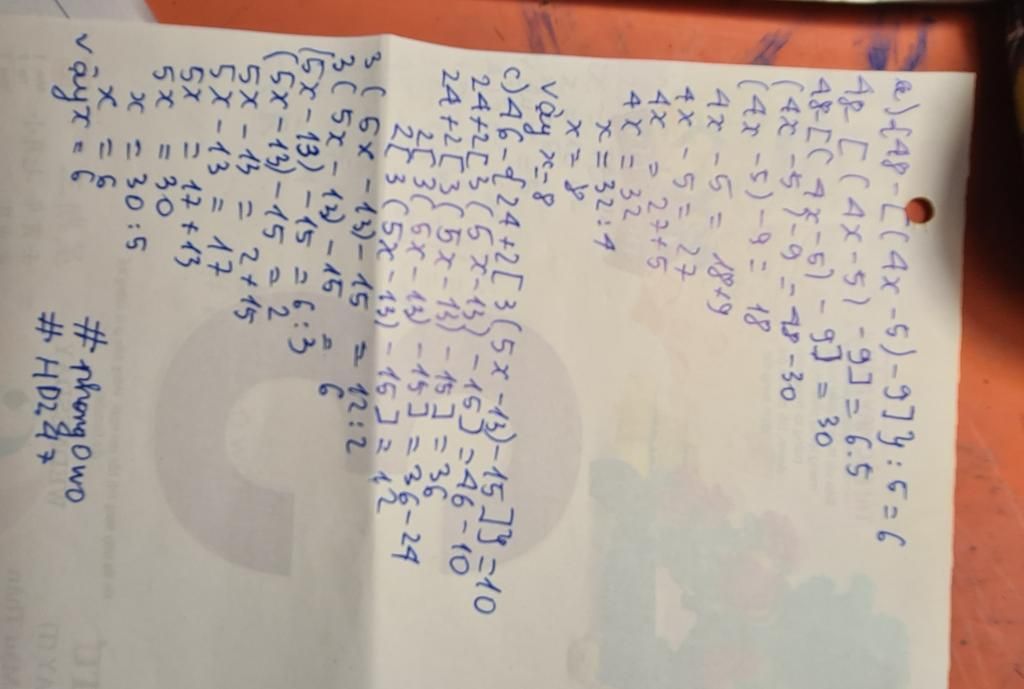 a) {48 - [(4x - 5) - 9]} : 5 = 6
48 [(4x - 5) - 9] = 6.5
48 - [(4x - 5) - 9] = 30
(4x - 5) - 9 = 48 - 30
(4x - 5) - 9 = 18
4x - 5 = 18 + 9
4x - 5 = 27
4x = 27 + 5
4x = 32
x = 32 : 4
x = 8
vậy x = 8
c) 46 - {24 + 2[3(5x - 13) - 15]} = 10
24 + 2[3(5x - 13) - 15] = 46 - 10
24 + 2[3(5x - 13) - 15] = 36
2[3(5x - 13) - 15] = 36 - 24
2[3(5x - 13) - 15] = 12
3(5x - 13) - 15 = 12 : 2
3(5x - 13) - 15 = 6
(5x - 13) - 15 = 6 : 3
(5x - 13) - 15 = 2
5x - 13 = 2 + 15
5x - 13 = 17
5x = 17 + 13
5x = 30
x = 30 : 5
x = 6
vậy x = 6
# Phong Ovo
# HD247